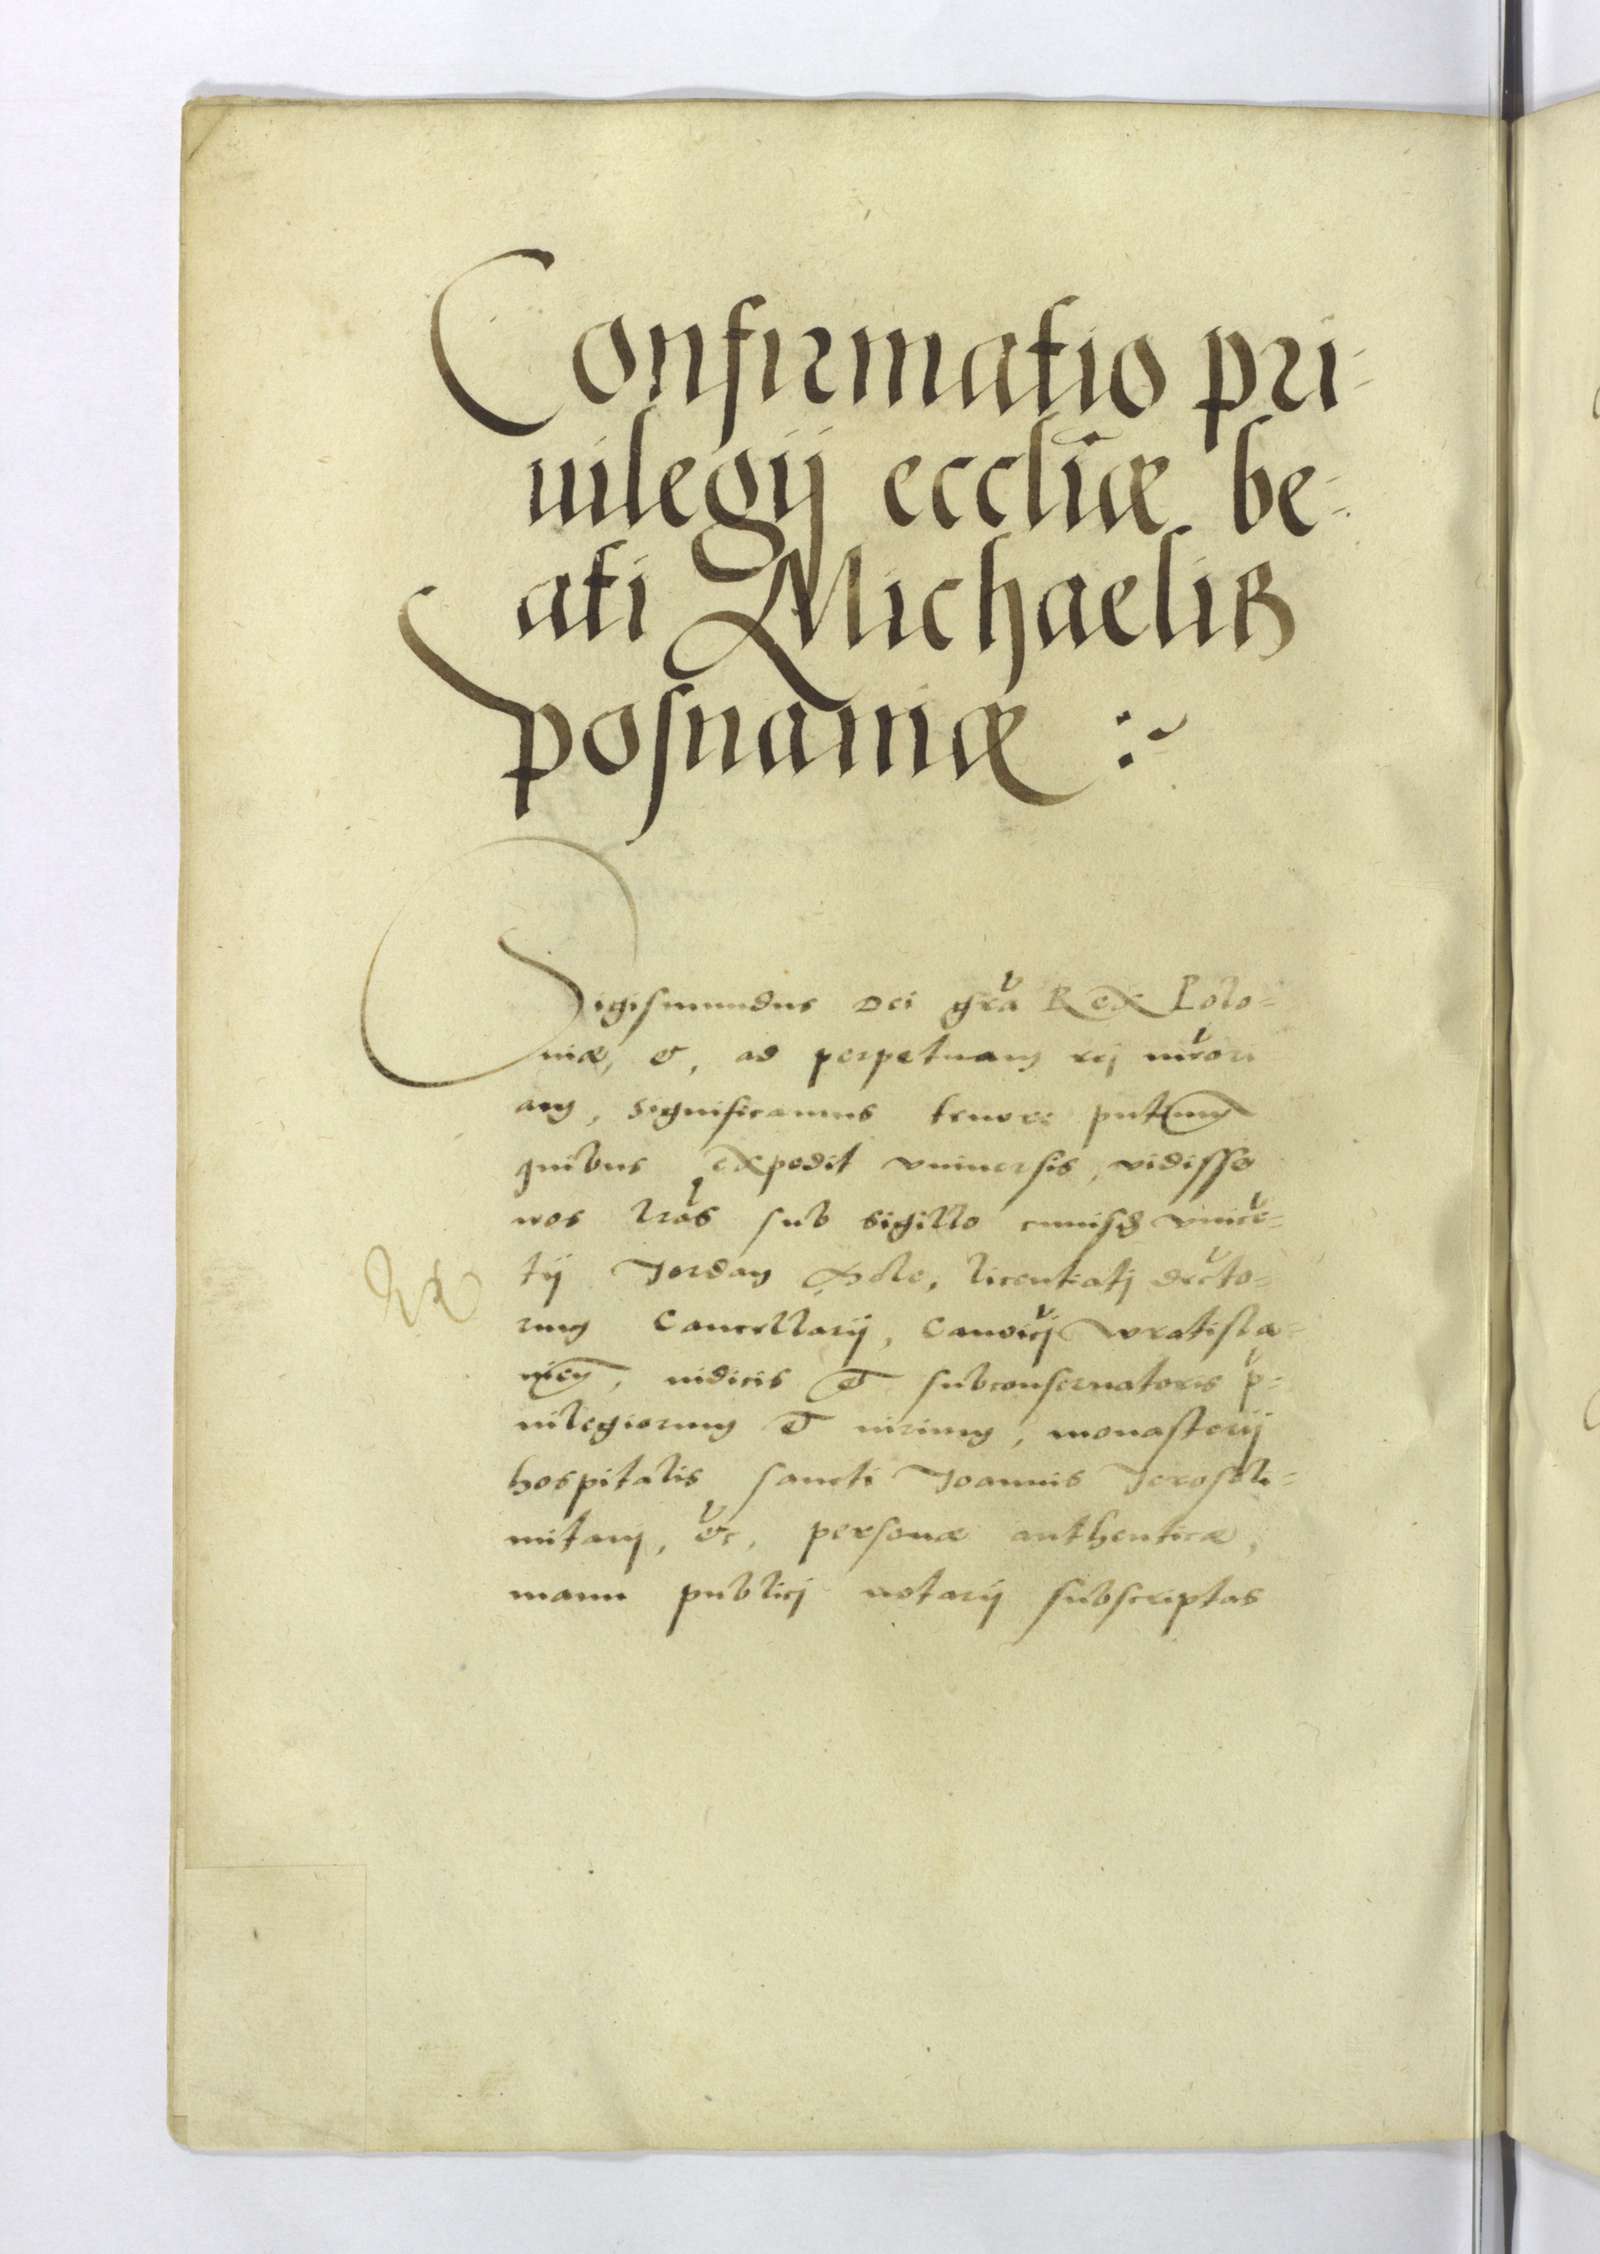 Confirmatio pri-
uilegij eccliæ be-
ati Michaelis
posnaniæ :~
Sigismundus Dei gra Rex Polo=
niæ, &, ad perpetuam rej memori
am, significamus tenore pntium
quibus expedit vniuersis, vidisse
nos lras sub sigillo cuiusd vince=
tij Jordan, licentiatj decto=
rum Cancellarij, Canoicj wratisla=
uien, iudicis et subconseruatoris p=
uilegiorum et iurium, monasterij
hospitalis sancti Joannis Jerosoli=
mitani, &c, personæ authenticæ,
manu publicj notarij subscriptas